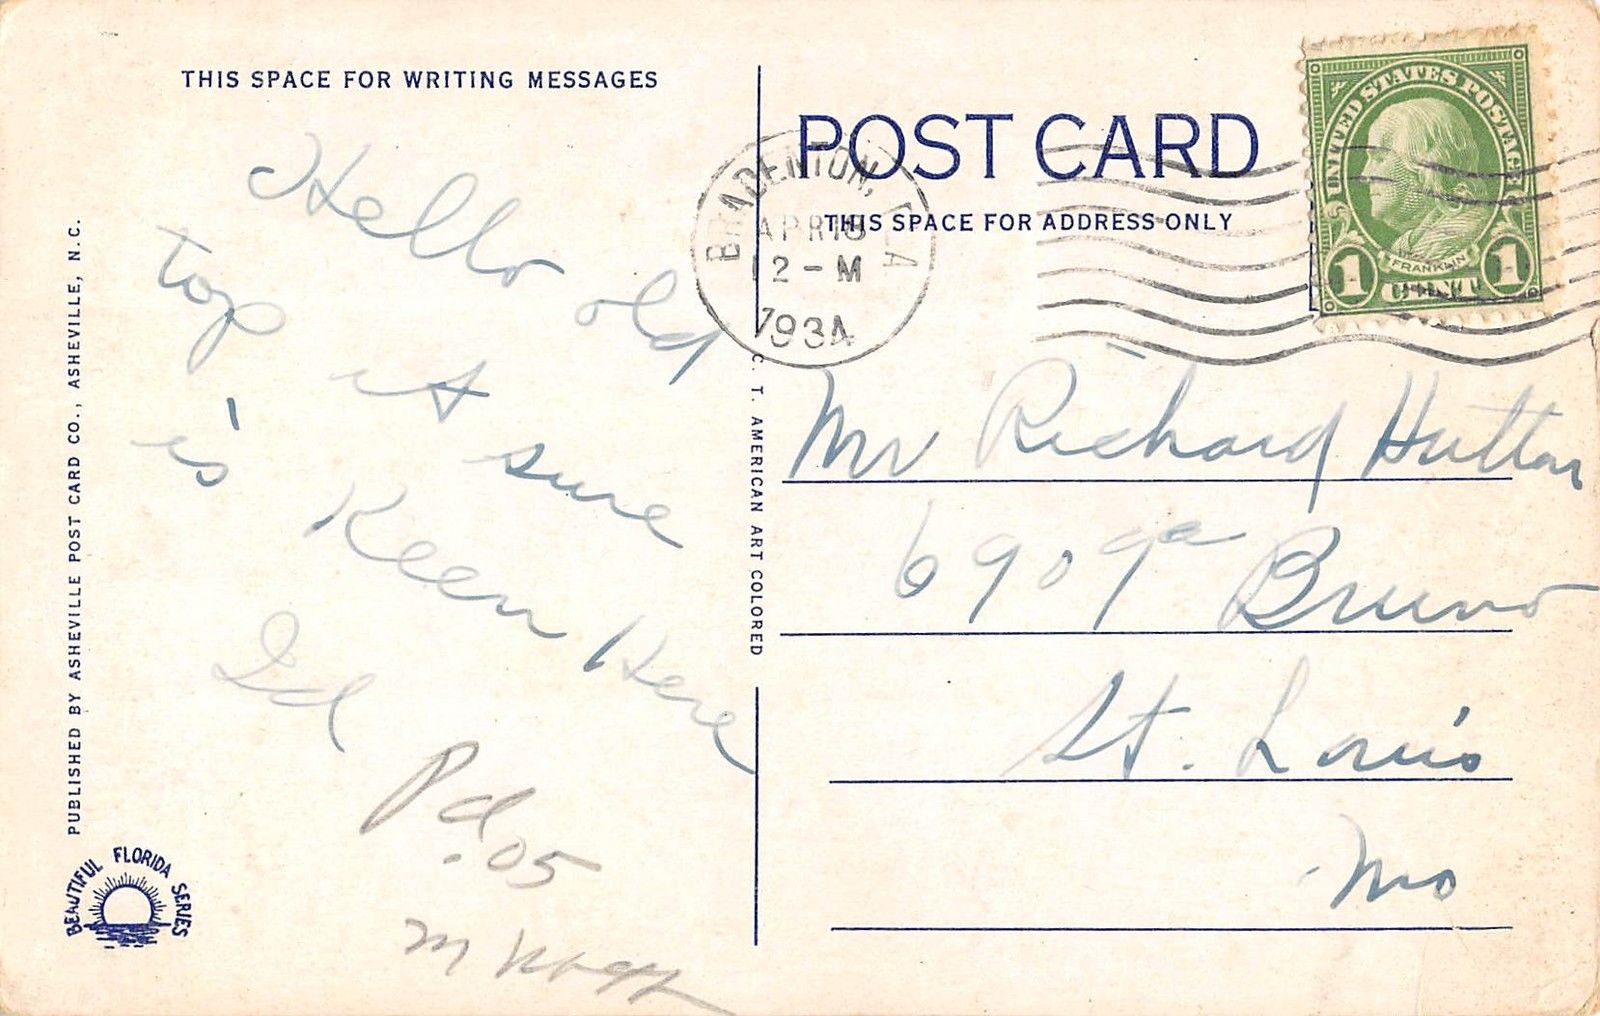 THIS SPACE FOR WRITING MESSAGES
Hello old
top it sure
is Keen Here
Ed
Pd .05
PUBLISHED BY ASHEVILLE POST CARD CO., ASHEVILLE, N. C.
BEAUTIFUL FLORIDA SERIES
C. T. AMERICAN ART COLORED
POST CARD
THIS SPACE FOR ADDRESS ONLY
BRADENTON, FLA
APR 18
12 - M
1934
UNITED STATES POSTAGE
FRANKLIN
1 CENT 1
Mr Richard Hutton
6909a Bruno
St. Louis
Mo